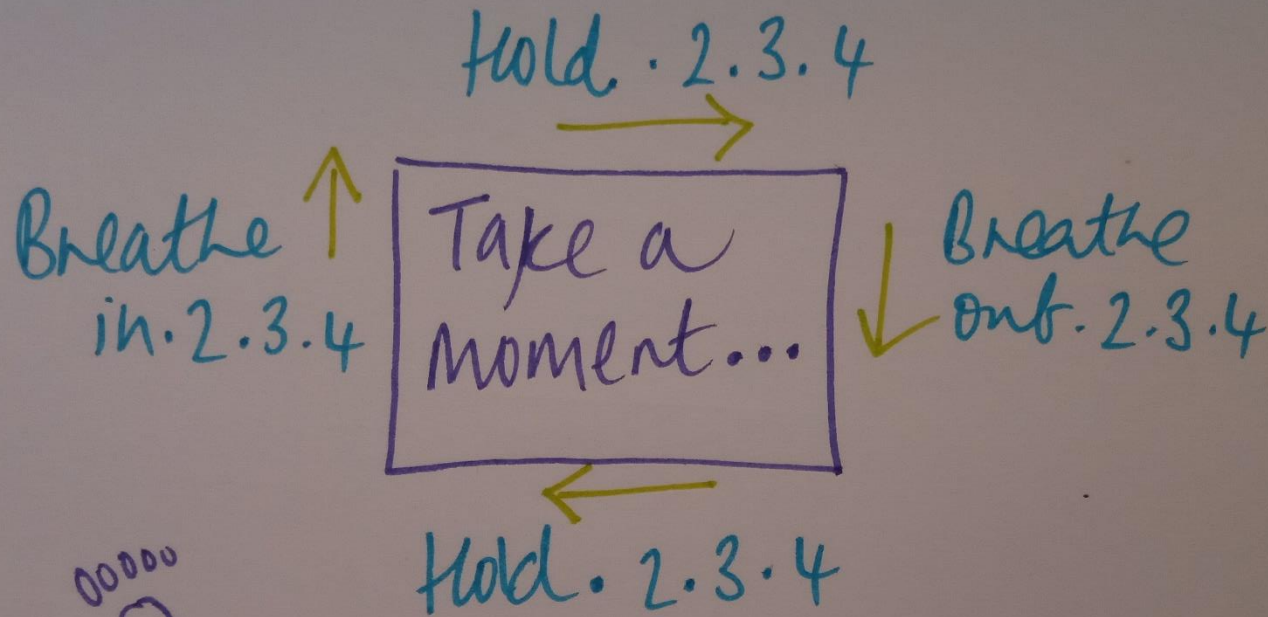 Hold. . 2.3.4
Breathe
in. 2.3.4
Take a
moment...
Breathe
out. 2.3.4
Hold. 2.3.4